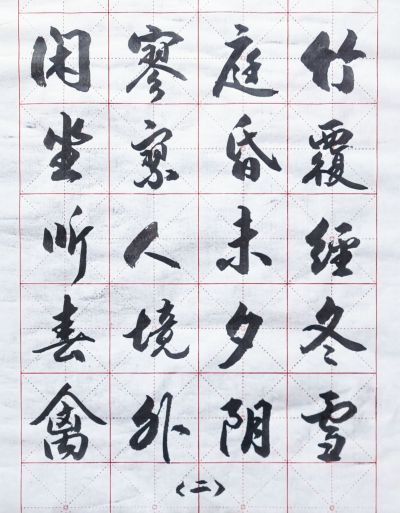 竹覆經冬雪
庭昏未夕阴
寥寥人境外
闲坐听春禽
(二)